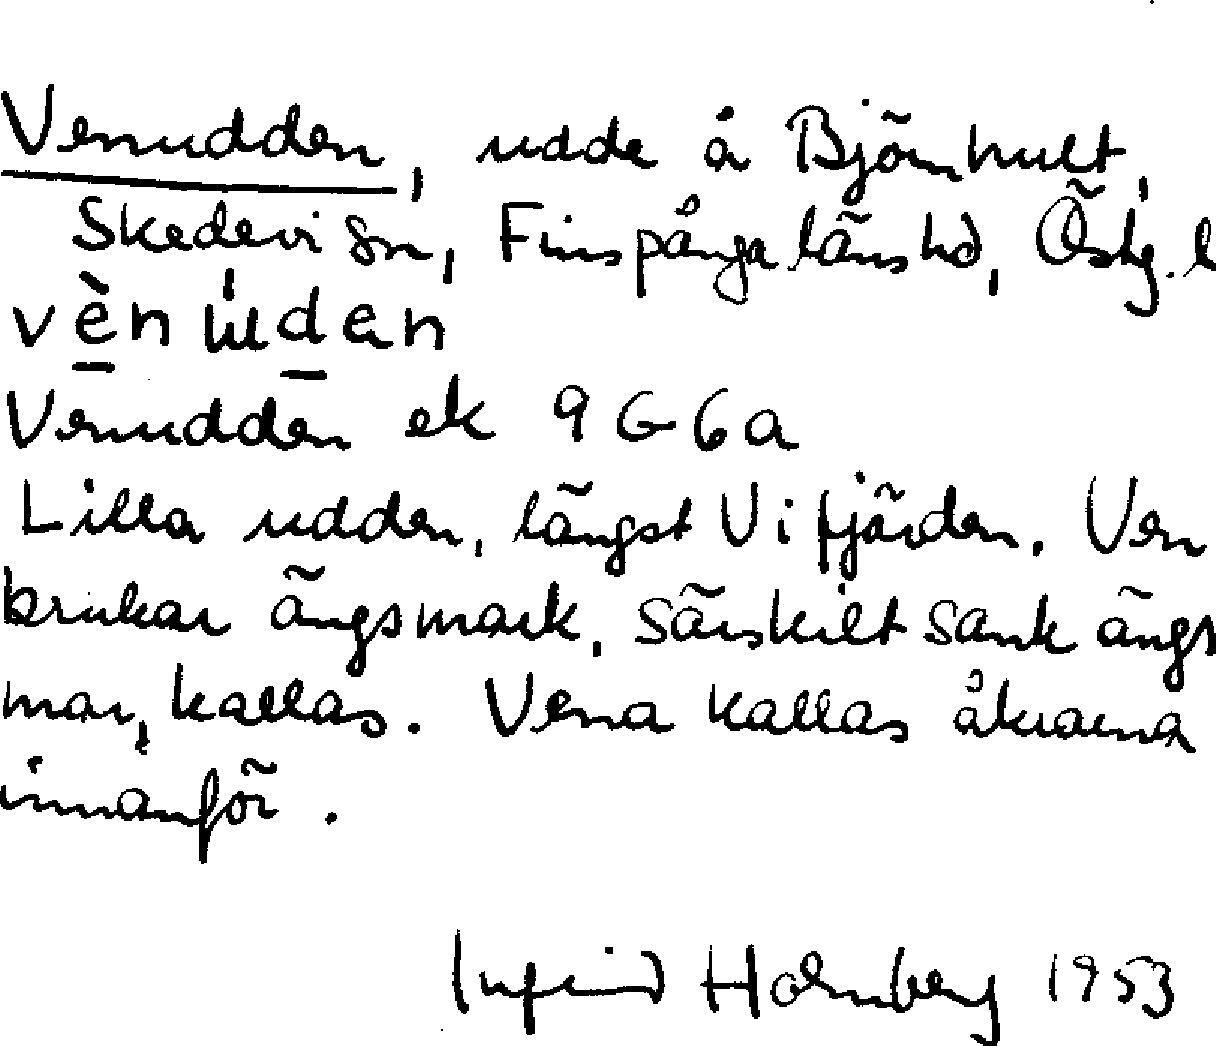 Venudden, udde å Björnhult,
Skedevi sn, Finspånga läns hd, Östg. l
vèn ùdan
Venudden ek 9 G 6 a
Lilla udden, längst V i fjärden. Ven
brukar ängsmark, särskilt sank ängs
mark, kallas. Vena kallas åkrarna
innanför.
Ingrid Holmberg 1953